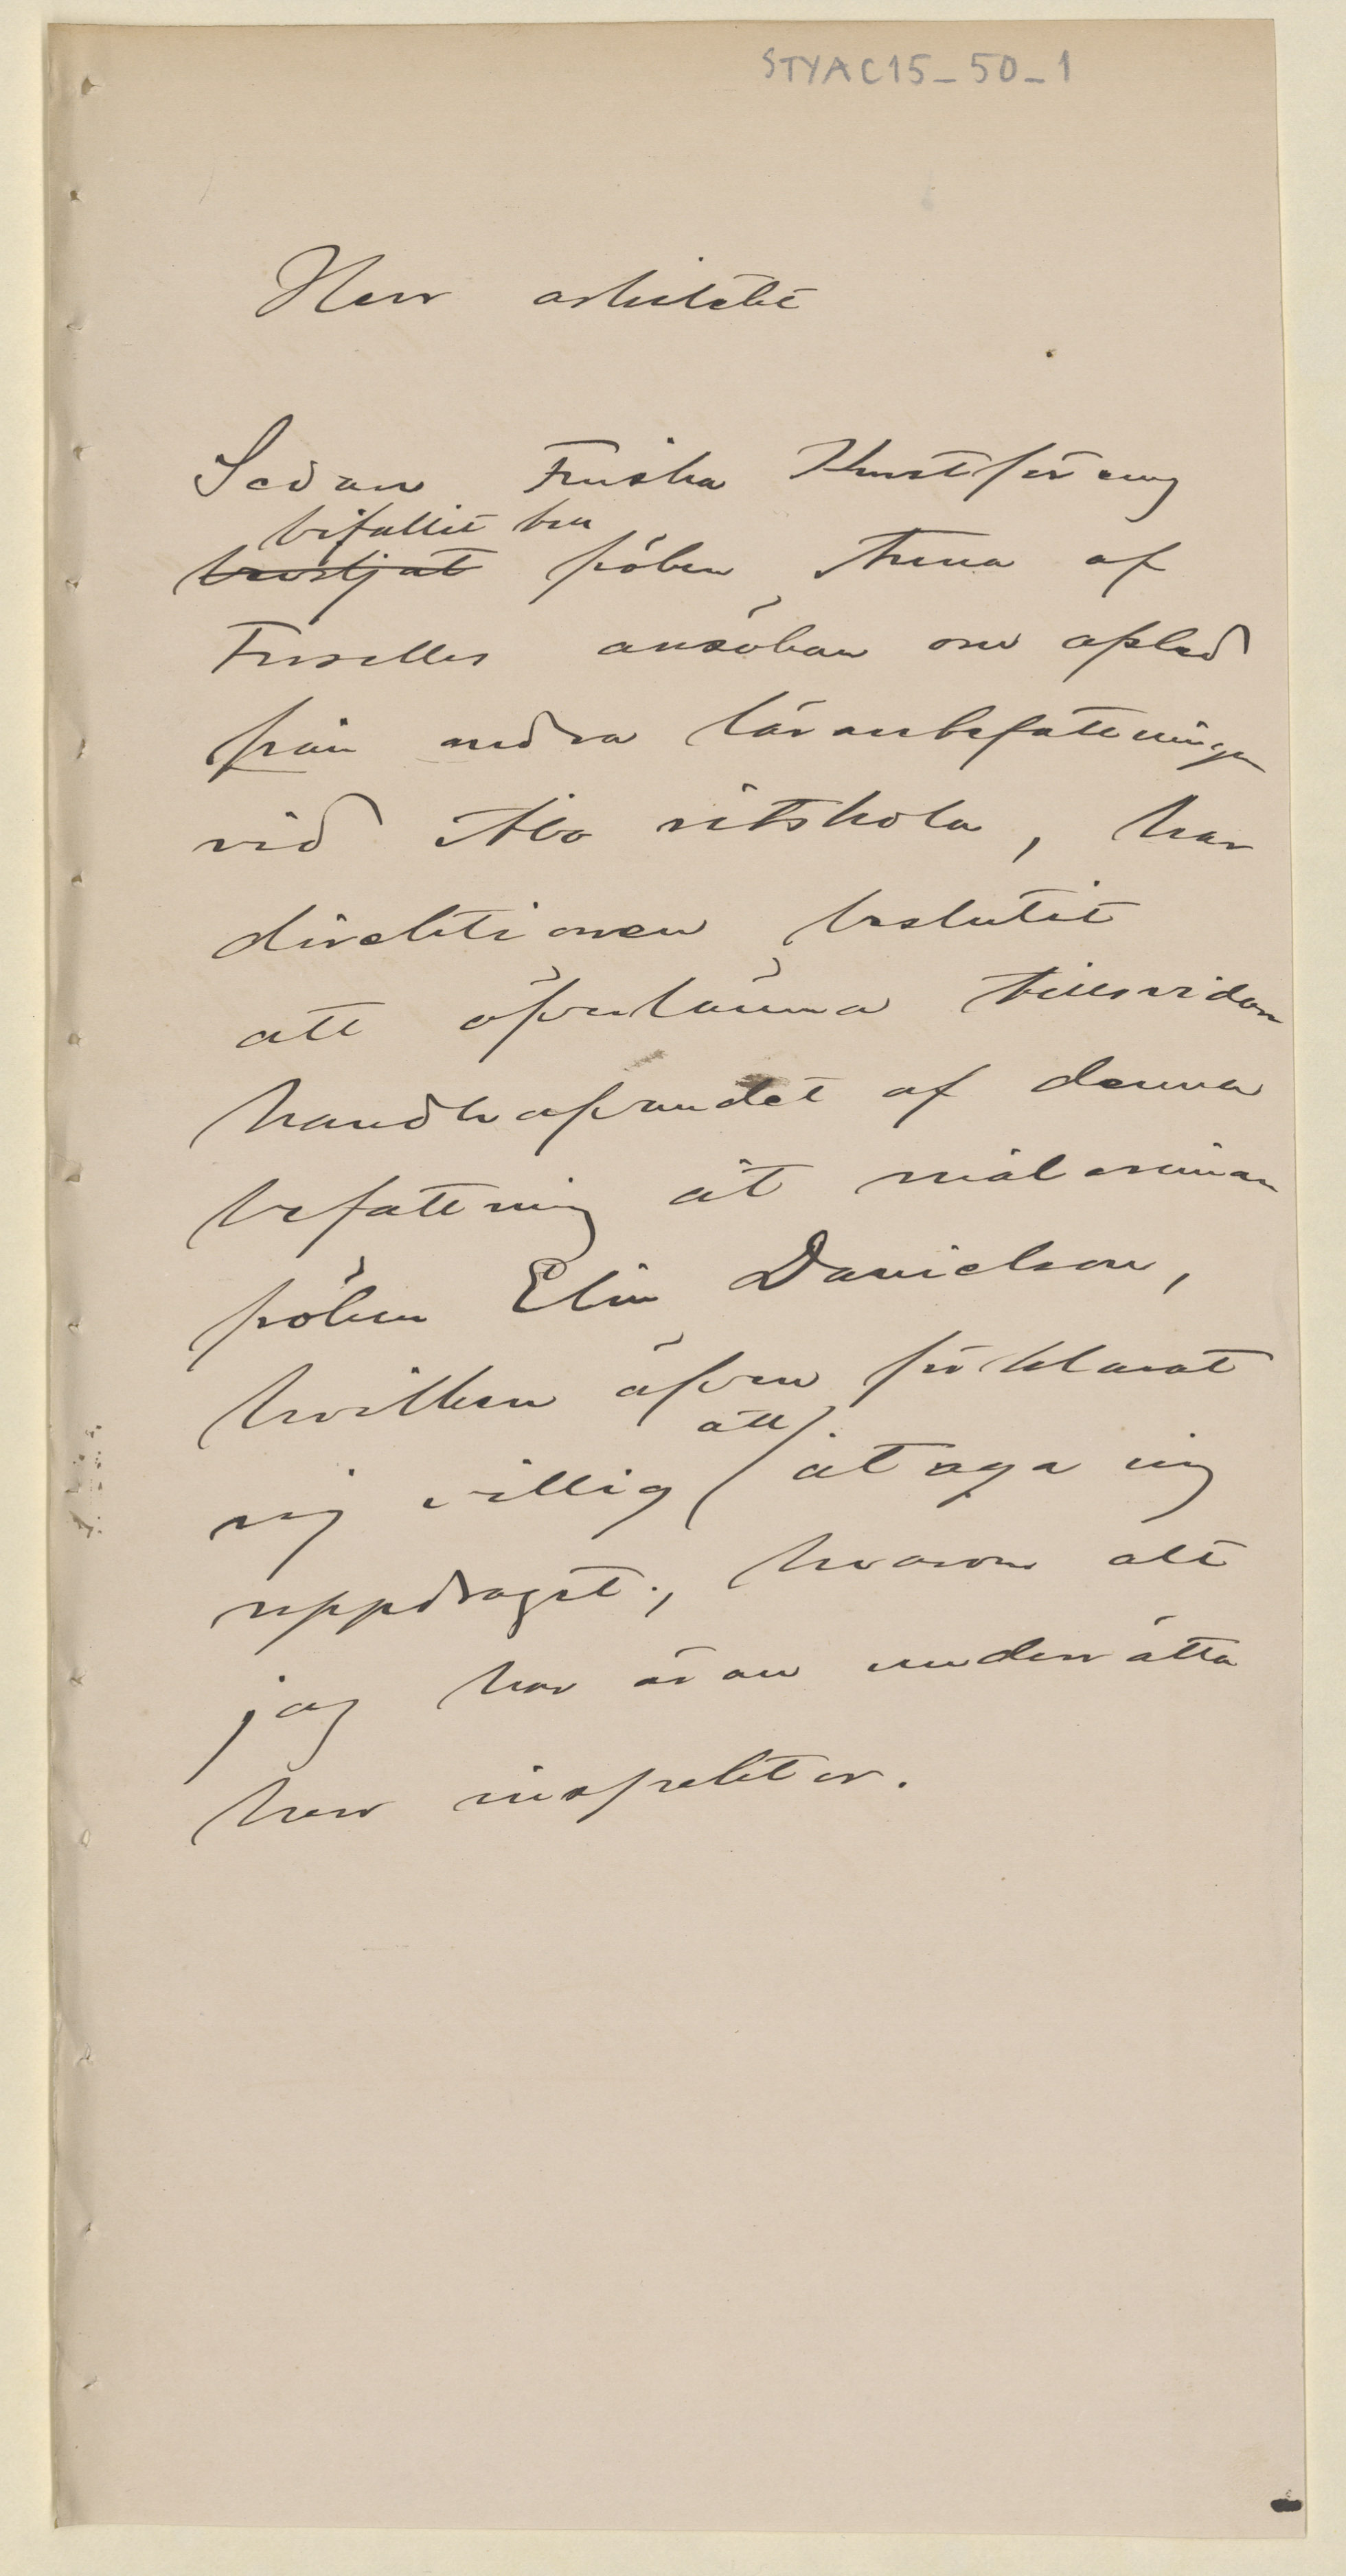 STYAC15_50_1
Herr arkitekt
Sedan Finska Konstfören͞g
bifallit
beviljat fröken Anna af
Forselles ansökan om afsked
från andra lärarebefattningen
vid Åbo ritskola, har
direktionen beslutit
att öfverlämna tillsvidare
handhafvandet af denna
befattning åt målarinnan
fröken Elin Danielson,
hvilken äfven förklarat
sig villig att åtaga sig
uppdraget, hvarom att
jag har äran underrätta
herr inspektor.